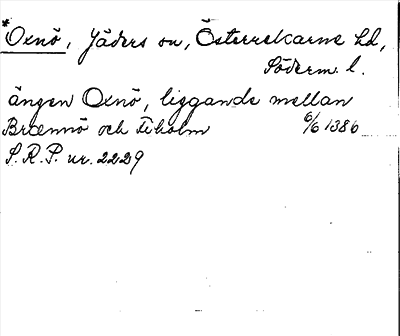 *Oxnö, Jäders sn, Österrekarne hd,
Söderm. l.
ängen Oxnö, liggande mellan
Brænnö och Tiholm 6/6 1386
S.R.P. nr. 2229